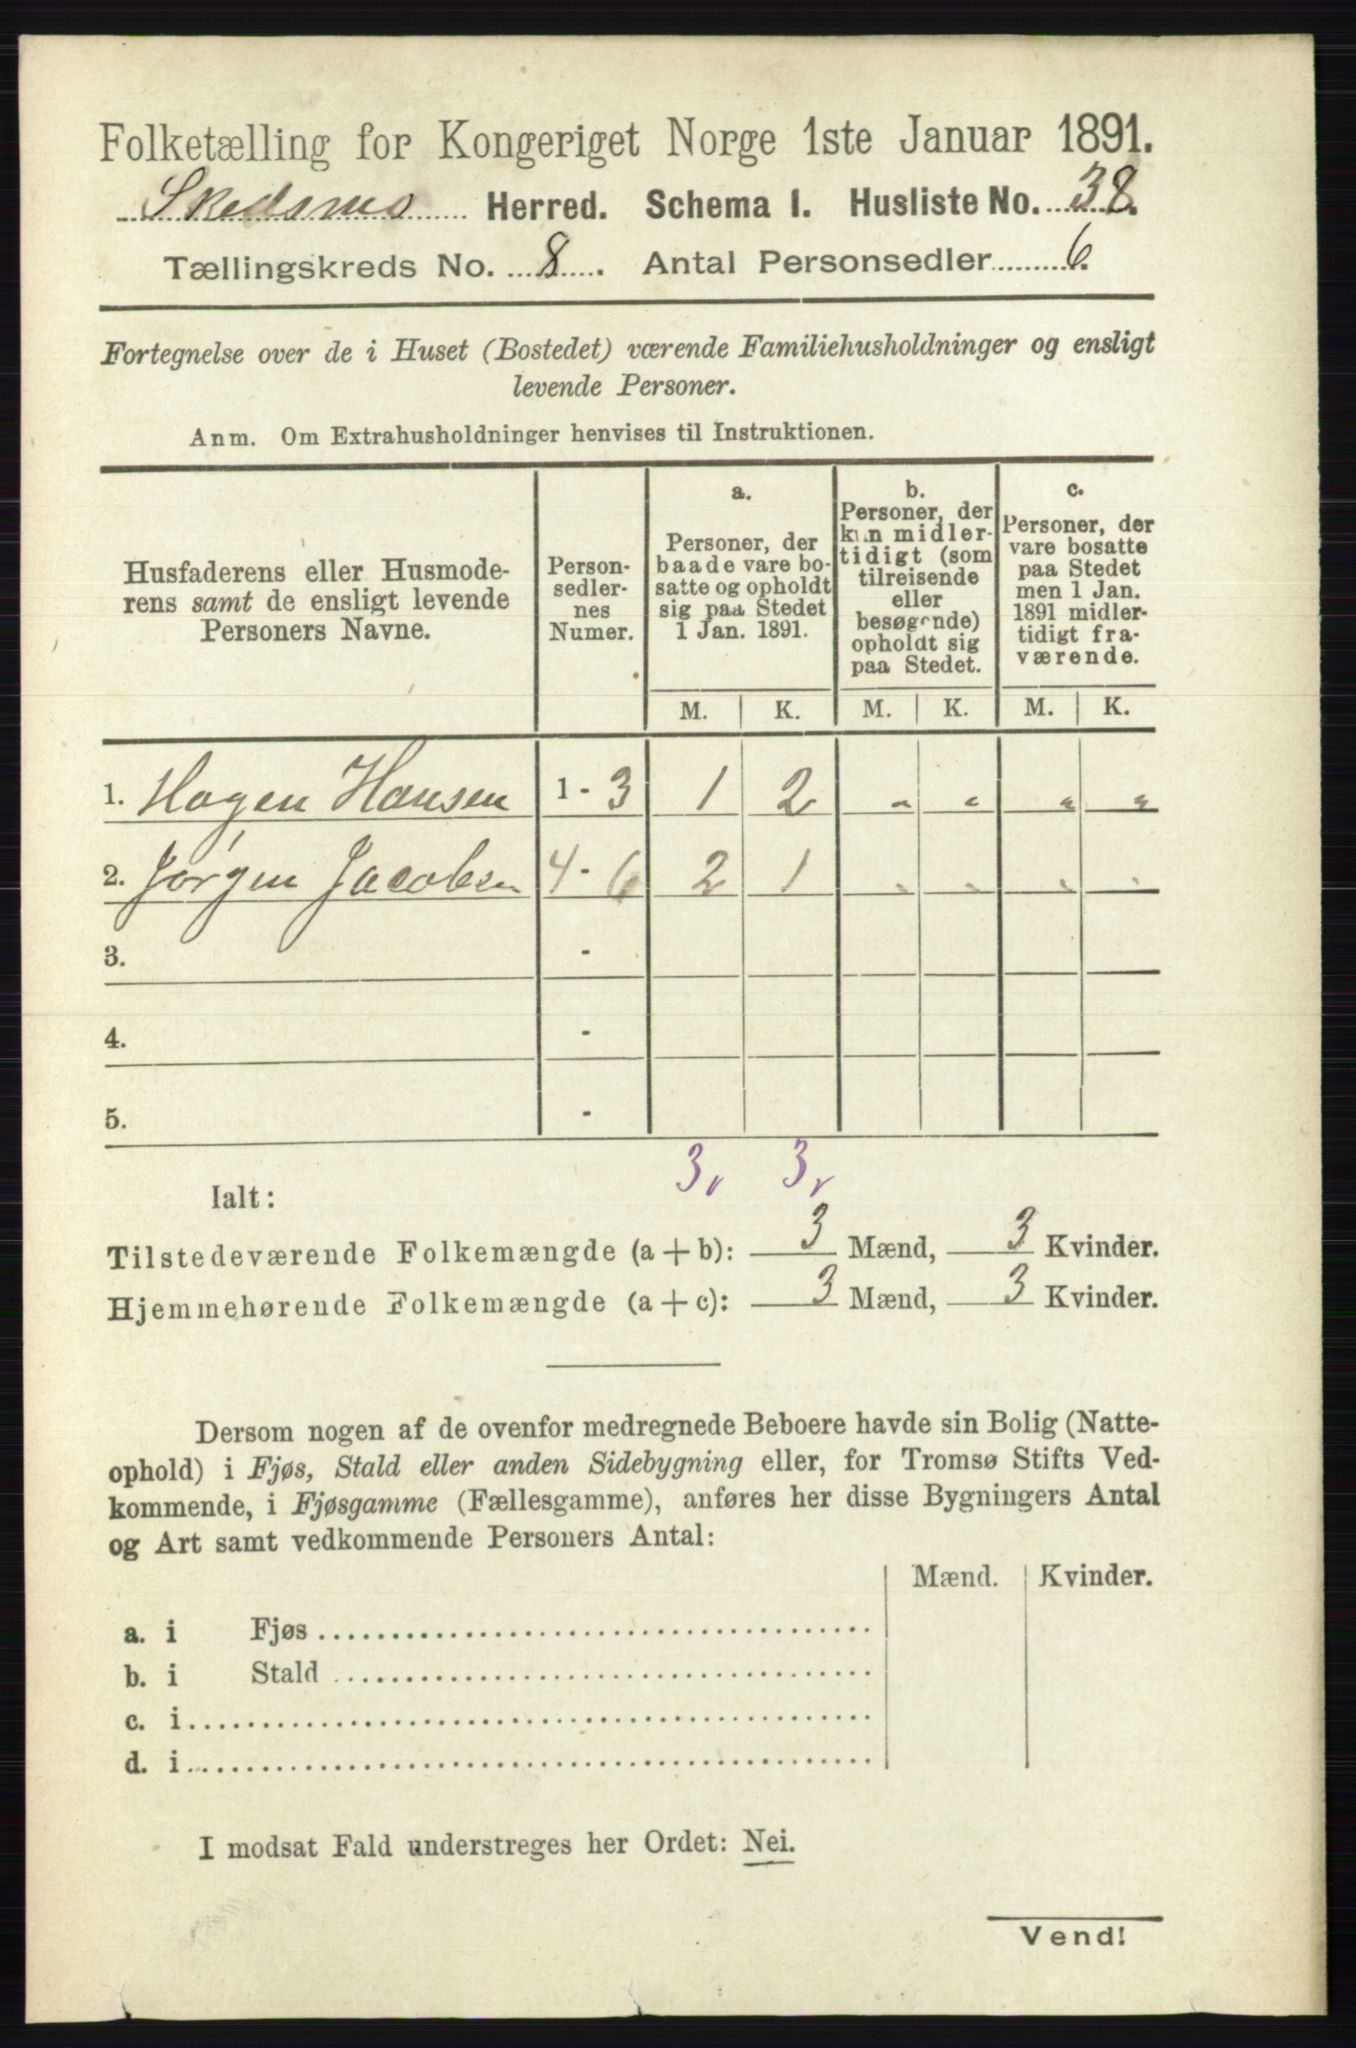 Folketælling for Kongeriget Norge 1ste Januar 1891.
Skedsmo Herred. Schema I. Husliste No. 38.
Tællingskreds No. 8. Antal Personsedler 6.
Fortegnelse over de i Huset (Bostedet) værende Familiehusholdninger og ensligt
levende Personer.
Anm. Om Extrahusholdninger henvises til Instruktionen.
Husfaderens eller Husmode-
rens samt de ensligt levende
Personers Navne.
Person-
sedler-
nes
Numer.
a.
Personer, der
baade vare bo-
satte og opholdt
sig paa Stedet
1 Jan. 1891.
b.
Personer, der
kun midler-
tidigt (som
tilreisende
eller
besøgende)
opholdt sig
paa Stedet.
c.
Personer, der
vare bosatte
paa Stedet
men 1 Jan.
1891 midler-
tidigt fra-
værende.
M. K. M. K. M. K.
1. Hagen Hansen 1 - 3 1 2 " " " "
2. Jørgen Jacobsen 4 - 6 2 1 " " " "
3. -
4. -
5. -
3 3
Ialt:
Tilstedeværende Folkemængde (a + b): 3 Mænd, 3 Kvinder.
Hjemmehørende Folkemængde (a + c): 3 Mænd, 3 Kvinder.
Dersom nogen af de ovenfor medregnede Beboere havde sin Bolig (Natte-
ophold) i Fjøs, Stald eller anden Sidebygning eller, for Tromsø Stifts Ved-
kommende, i Fjøsgamme (Fællesgamme), anføres her disse Bygningers Antal
og Art samt vedkommende Personers Antal:
Mænd. Kvinder.
a. i Fjøs
b. i Stald
c. i
d. i
I modsat Fald understreges her Ordet: Nei.
Vend!